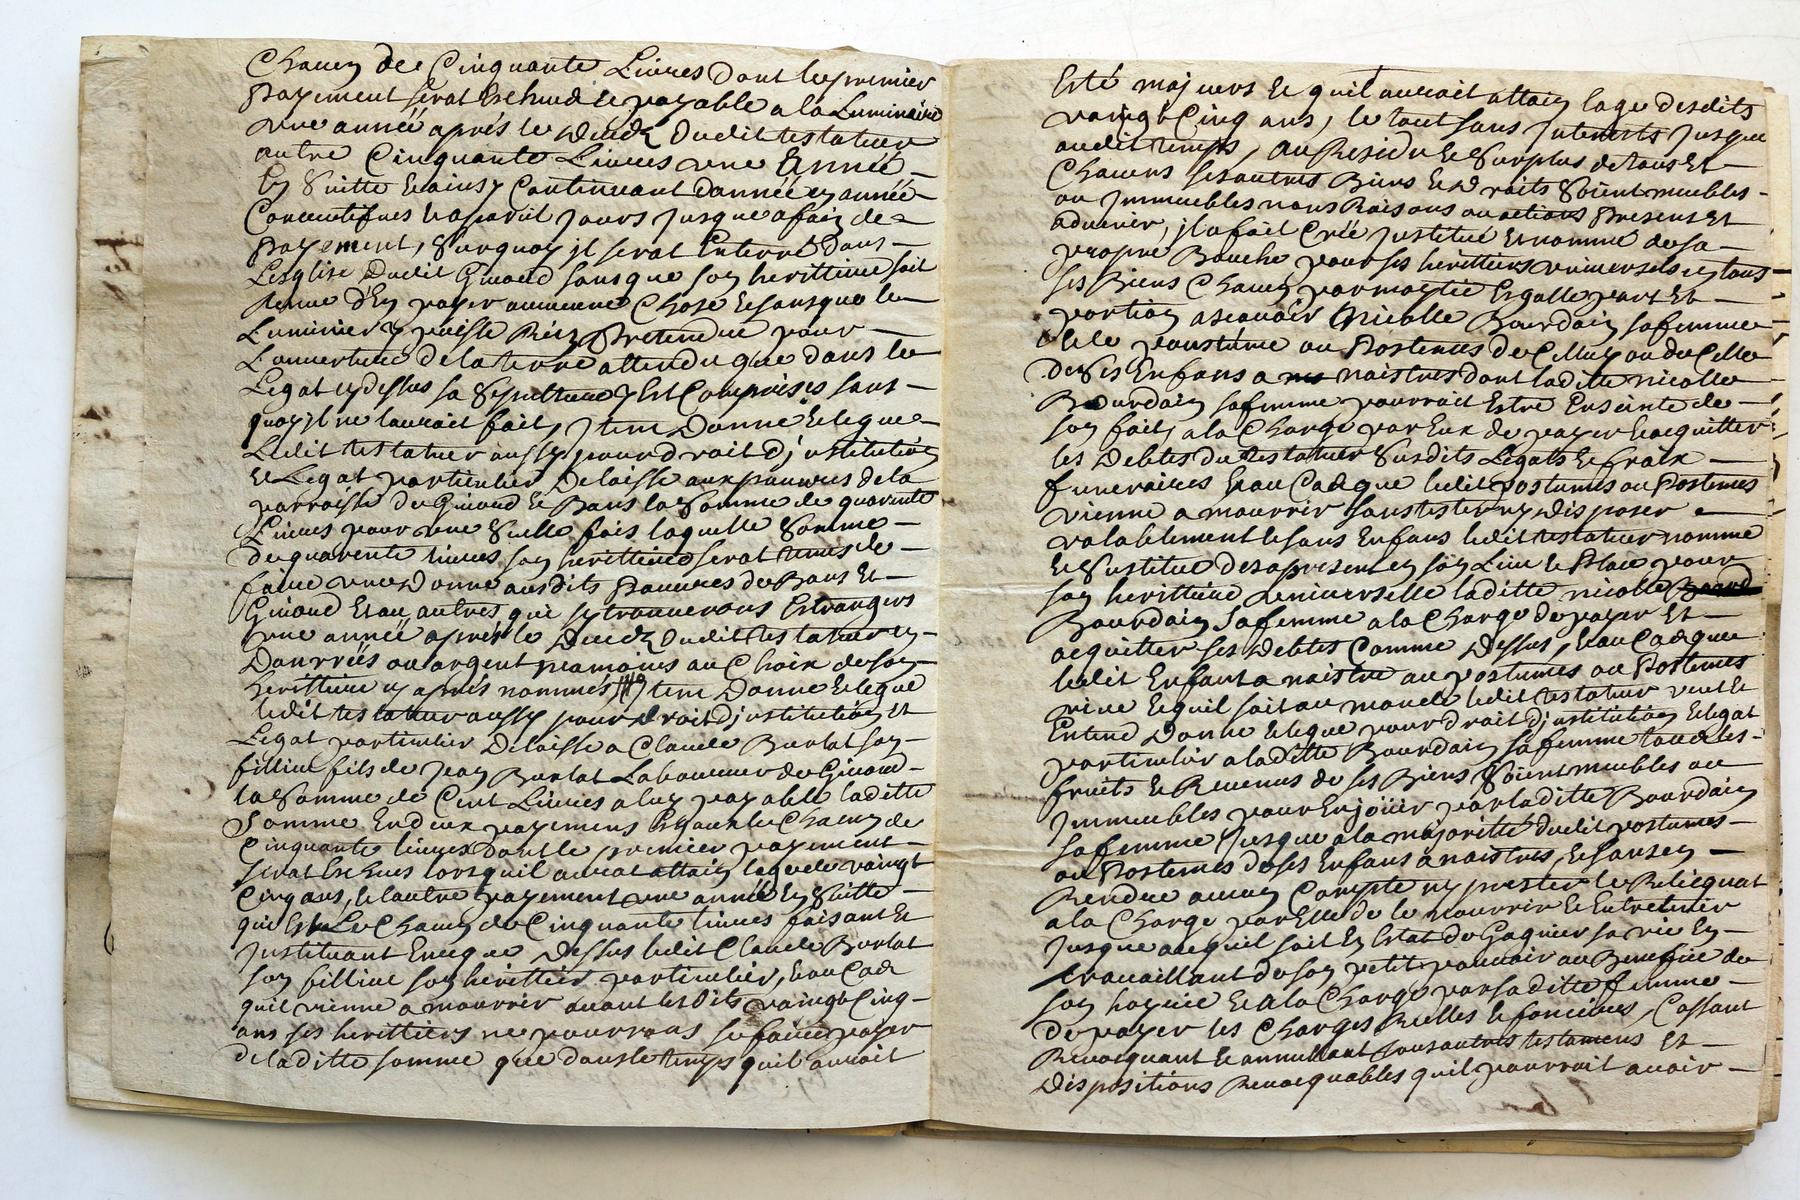 Chacun de Cinquante Livres Dont le premier
payement serat Escheud et payable a la Luminairie
une année aprés le Decedz dudit testateur
autre Cinquante Livres une Année
En Suitte et ainsy Continuant dannée en année
Consecutifves et a pareil jours jusque a fain de
payement, Surquoy jl serat Enterré Dans
Lesglise Dudit Ginaud sans que son herittiere soit
tenue d'En payer aucunne Chose et sans que le
Luminier y puisse Rien Pretendre pour
Louverture de la terre attendu que dans le
Legat cy dessus sa Sepulture y Est Comprises sans
quoy jl ne lauroit fait, jtem Donne et legue
Ledit testateur aussy pour droit dj nstitution
et Legat particulier Delaisse aux pauvres de la
parroisse de Ginaud et Bans la Somme de quarente
Livres pour une Seulle fois laquelle Somme
de quarente livres son herittiere serat tenus de
faire une Donne ausdits Pauvres de Bans Et
Ginaud Et aux autres qui sy trouverons Estrangers
une année aprés le Decedz dudit testateur en
Danrrées ou argent neamoins au Choix de son
herittiere cy aprés nommés jtem Donne et legue
ledit testateur aussy pour droit dj nstitution et
Legat particulier Delaisse a Claude Burlat son
filliue fils de Jean Burlat Laboureur de Ginaud
la Somme de Cent Livres a luy payable laditte
Somme En deux payemens Esgaux le Chacun de
Cinquante livres Dont le premier payement
serat Escheus lorsquil auerat attain lage de vaingt
Cinq ans, et lautre payement une année En Suitte
qui Est Le Chacun de Cinquante livres faisant Et
Justituant Enceque Dessus ledit Claude Burlat
son filliue son herittier particulier, Et au Cas
quil vienne a mourrir avant lesdits vaingt Cinq
ans ses herittiers ne pourrons se faire payer
de laditte somme que dans le temps quil auroit
Esté majeurs Et quil auroit attain lage desdits
vaingt Cinq ans, le tout sans Jnterests jusque
audit temps, au Residu et Surplus de tous Et
Chacuns ses autres Biens et droits Soient meubles
ou jmmeubles noms Raisons ou actions Presens Et
advenir, jl a fait Créé justitué Et nommé de sa
propre Bouche pour ses herittiers universels en tous
ses Biens Chacun par moytié Esgalle part Et
portion ascavoir Nicolle Bourdain sa femme
Et le poustume ou Postumes de Celluy ou de Celle
De ses Enfans a naistres dont laditte nicolle
Bourdain sa femme pourroit Estre Enseinte de
son fait, a la Charge par Eux de payer Et acquitter
les Debtes du testateur Susdits Legats et fraix
funeraires Et au Cas que ledit postumes ou Postumes
vienne a mourrir sans tester ny disposer
valablement et sans Enfans ledit testateur nomme
et Substitue des a present en son Lieu et Place pour
son herittiere universelle laditte nicolle
Bourdain sa femme a la Charge de payer Et
acquitter ses debtes Comme Dessus, Et au Cas que
ledit Enfant a naistre ou postumes ou Postumes
vive Et quil soit au monde ledit testateur veut Et
Entend Donne et legue pour droit dj nstitution Et legat
particulier a laditte Bourdain sa femme tous les
fruits et Revenus de ses Biens Soient meubles ou
jmmeubles pour En joüir par laditte Bourdain
sa femme jusque a la majoritté dudit postumes
ou Postumes de ses Enfans a naistres, et sans en
Rendre aucun Compte ny prester le Relicquat
a la Charge par Elle de le nourrir et Entretenir
Jusque acequil soit En Estat de Gagner sa vie En
travaillant de son petit pouvoir au Benefice de
son hoyrie et a la Charge par saditte femme
de payer les Charges Reelles et foncieres, Cassant
Revocquant et annullant tous autres testamens Et
dispositions Revocquables quil pourroit avoir